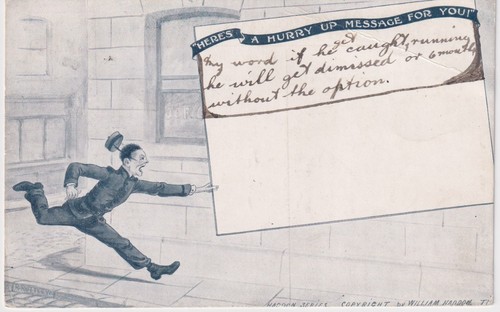 "HERE'S A HURRY UP MESSAGE FOR YOU!"
get
My word if he caught, running
he will get dimissed or 6 months
without the option.
HADDON SERIES COPYRIGHT BY WILLIAM HADDON.